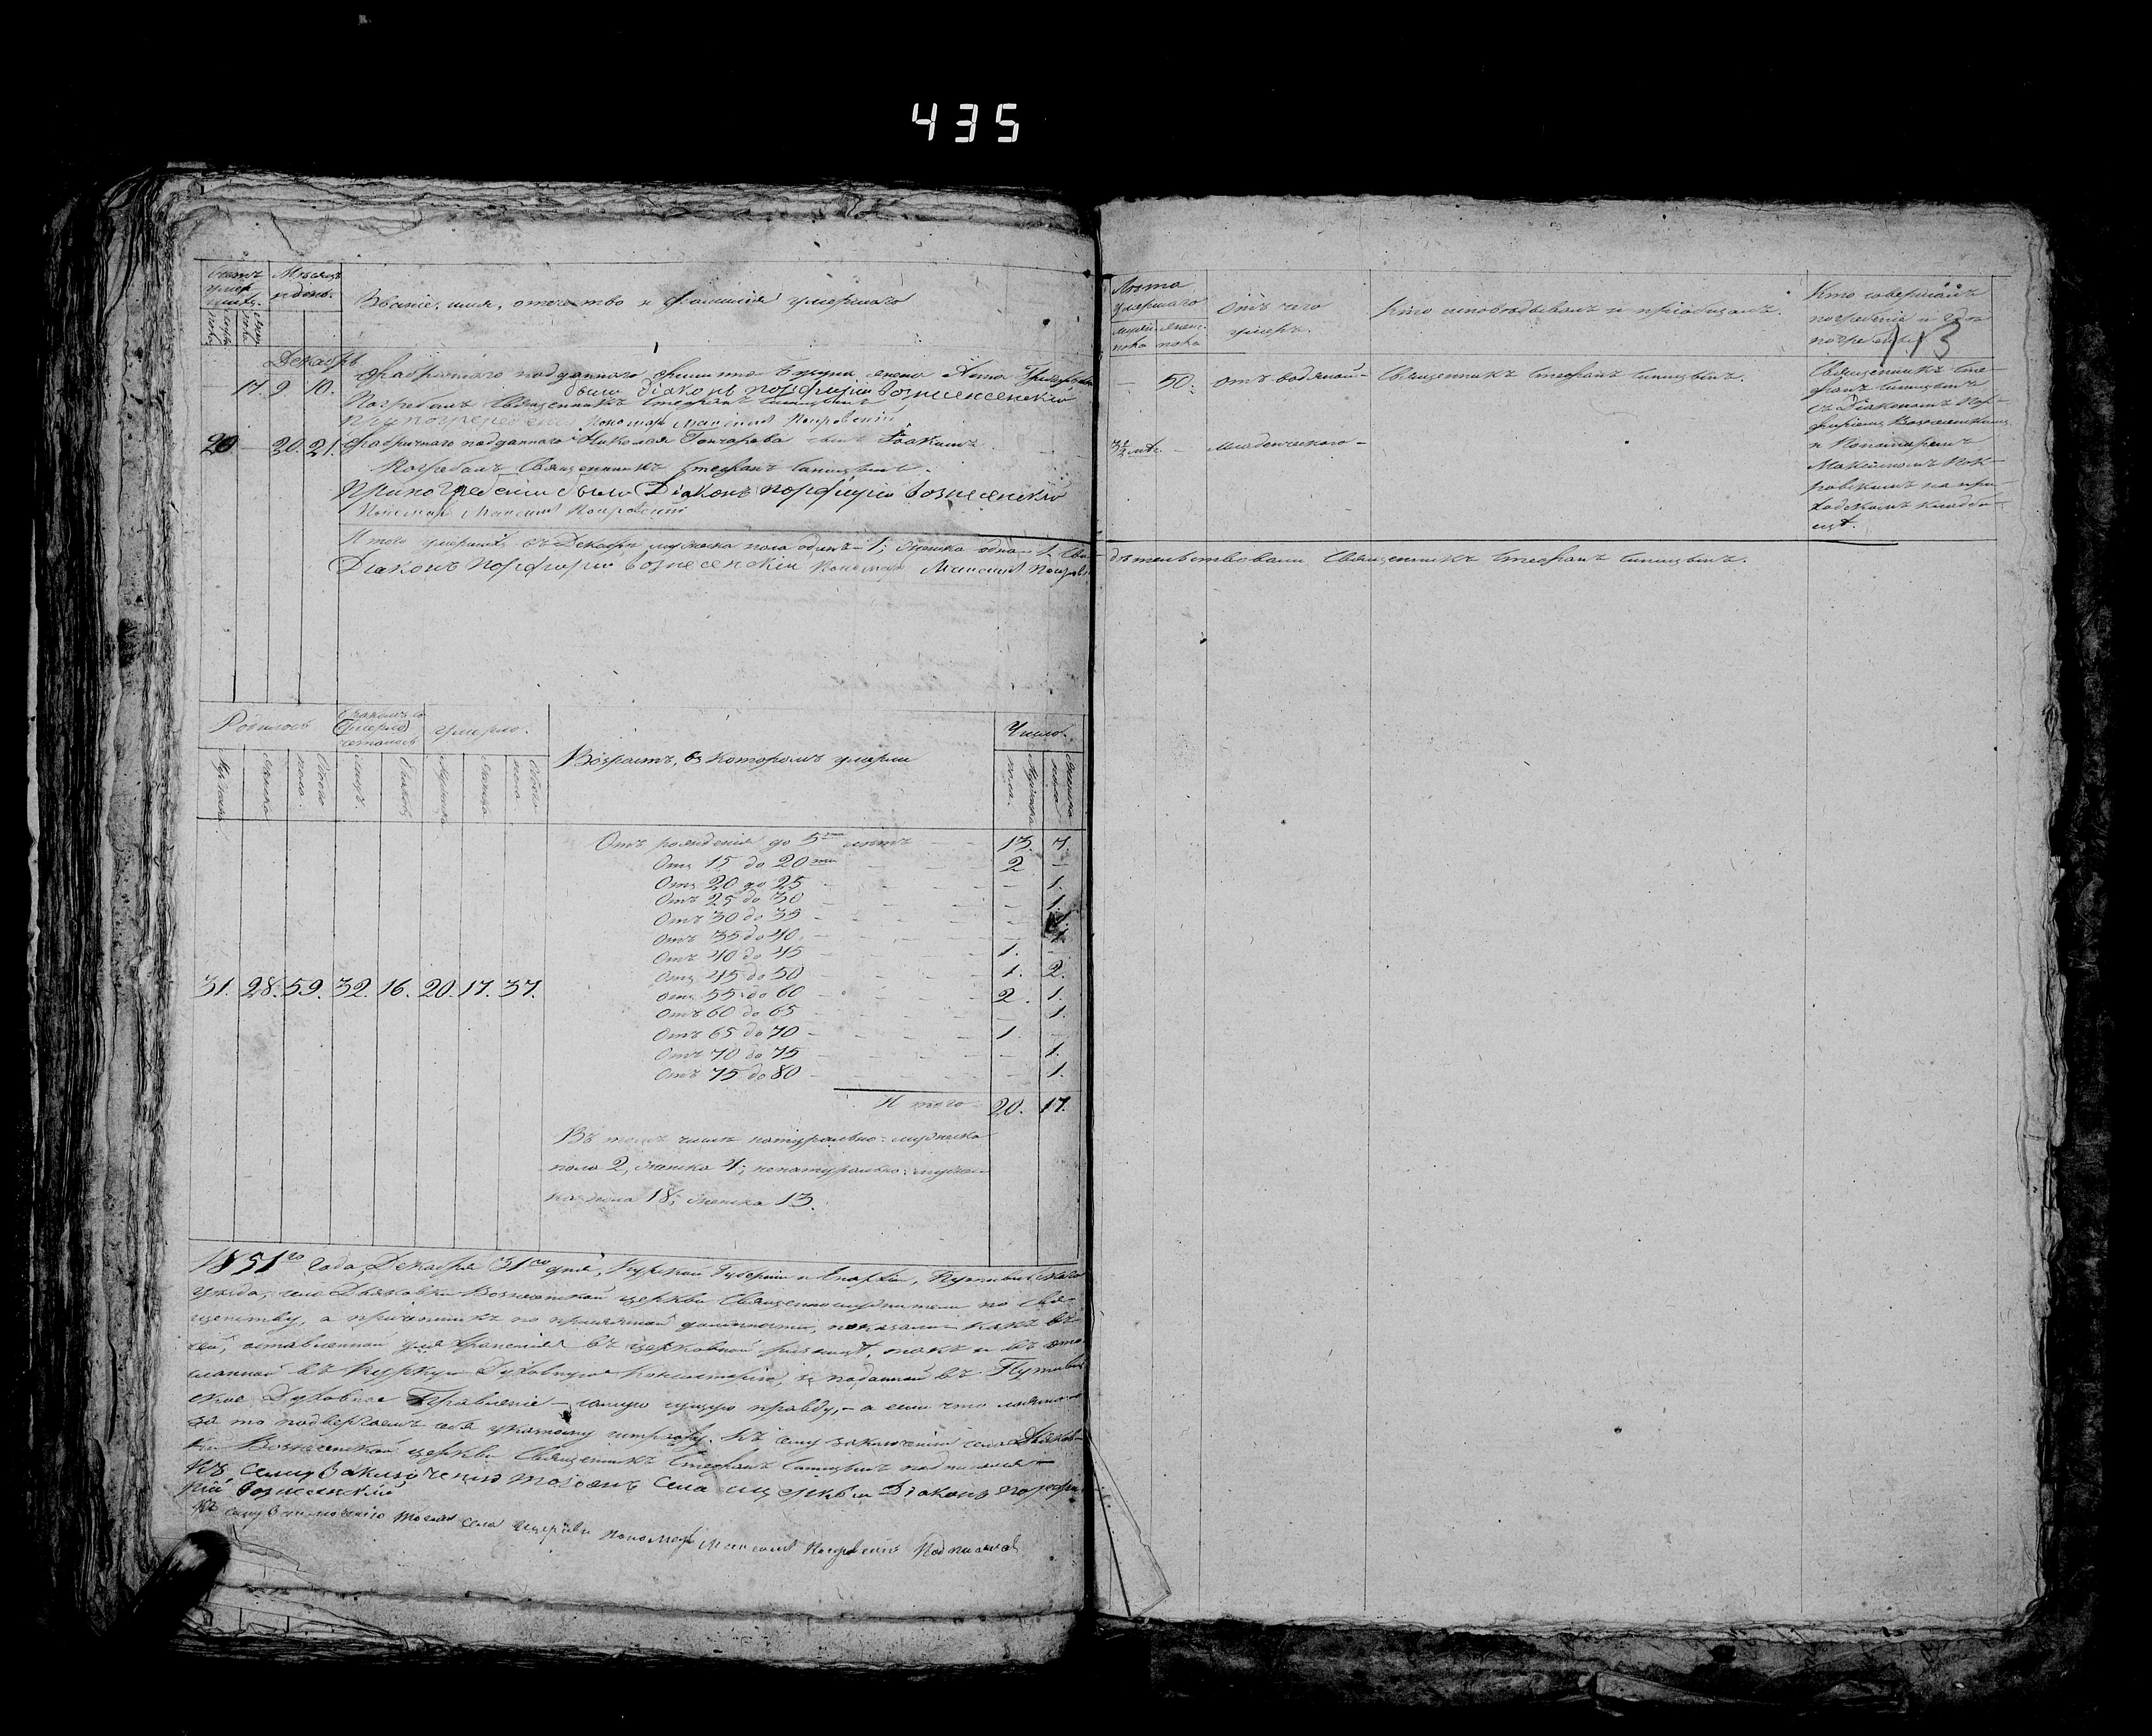 435
Счетъ умершихъ.
Мѣсяцъ и день.
Званіе, имя, отечество и фамилія умершаго
Лѣта умершаго
Отъ чего умеръ.
Кто исповѣдывалъ и пріобщалъ.
Кто совершалъ погребеніе и гдѣ погребены
113
Декабрь
17. 9 10. Фабричнаго подданнаго жена Анна
было Діаконъ Порфирій Вознесенскій
Погребалъ Священникъ Стефанъ
Пономарь Максимъ Покровскій
— 50. отъ водяной — Священникъ Стефанъ
Священникъ Сте-
фанъ
съ Діакономъ Пор-
фиріемъ Вознесенскимъ
и Пономаремъ
Максимомъ Пок-
ровскимъ на при-
ходскомъ кладби-
щѣ.
20 — 20. 21. Фабричнаго подданнаго Николая Гончарова сынъ Іоакимъ
младенческаго —
Погребалъ Священникъ Стефанъ
При погребеніи было Діаконъ Порфирій Вознесенскій
Пономарь Максимъ Покровскій
Итого умершихъ въ Декабрѣ мужеска пола одинъ — 1; женска одна — 1. Сви-
дѣтельствовали Священникъ Стефанъ
Діаконъ Порфирій Вознесенскій Пономарь Максимъ Покров
Родилось
умерло.
Возрастъ, въ которомъ умерли
Число.
Мужеска.
Женска
Обоего пола.
Мужеска
Женска
Обоего пола
Мужеска пола.
Женска пола
31. 28. 59. 32. 16. 20. 17. 37.
Отъ рожденія до 5 лѣтъ — 13. 7.
Отъ 15 до 20 — 2 —
Отъ 20 до 25 — — 1.
Отъ 25 до 30 — — 1.
Отъ 30 до 35 — — 1.
Отъ 35 до 40 — — 1.
Отъ 40 до 45 — 1. —
Отъ 45 до 50 — 1. 2.
Отъ 55 до 60 — 2. 1.
Отъ 60 до 65 — — 1.
Отъ 65 до 70 — 1. —
Отъ 70 до 75 — — 1.
Отъ 75 до 80 — — 1.
Итого 20. 17.
Въ томъ числѣ натурально: мужеска
пола 2, женска 4; ненатурально: мужес-
ка пола 18; женска 13.
1851го года, Декабря 31го дня, Курской Губерніи и Епархіи, Путивльскаго
уѣзда, села Вознесенской церкви Священнослужители по свя-
щенству, а причетникъ по присяжной должности, показали какъ въ
сей, оставленной для храненія въ церковной ризницѣ, такъ и въ
въ Курскую Духовную Консисторію, и поданной въ Путивль-
ское Духовное Правленіе — самую сущую правду, — а если что
за то подвергаемъ себя указному штрафу. Къ сему заключенію села
Вознесенской церкви Священникъ Стефанъ подписался —
Къ сему заключенію тогожъ села и церкви Діаконъ Порфи-
рій Вознесенскій
Къ сему заключенію тогожъ села и церкви Пономарь Максимъ Покровскій подписался